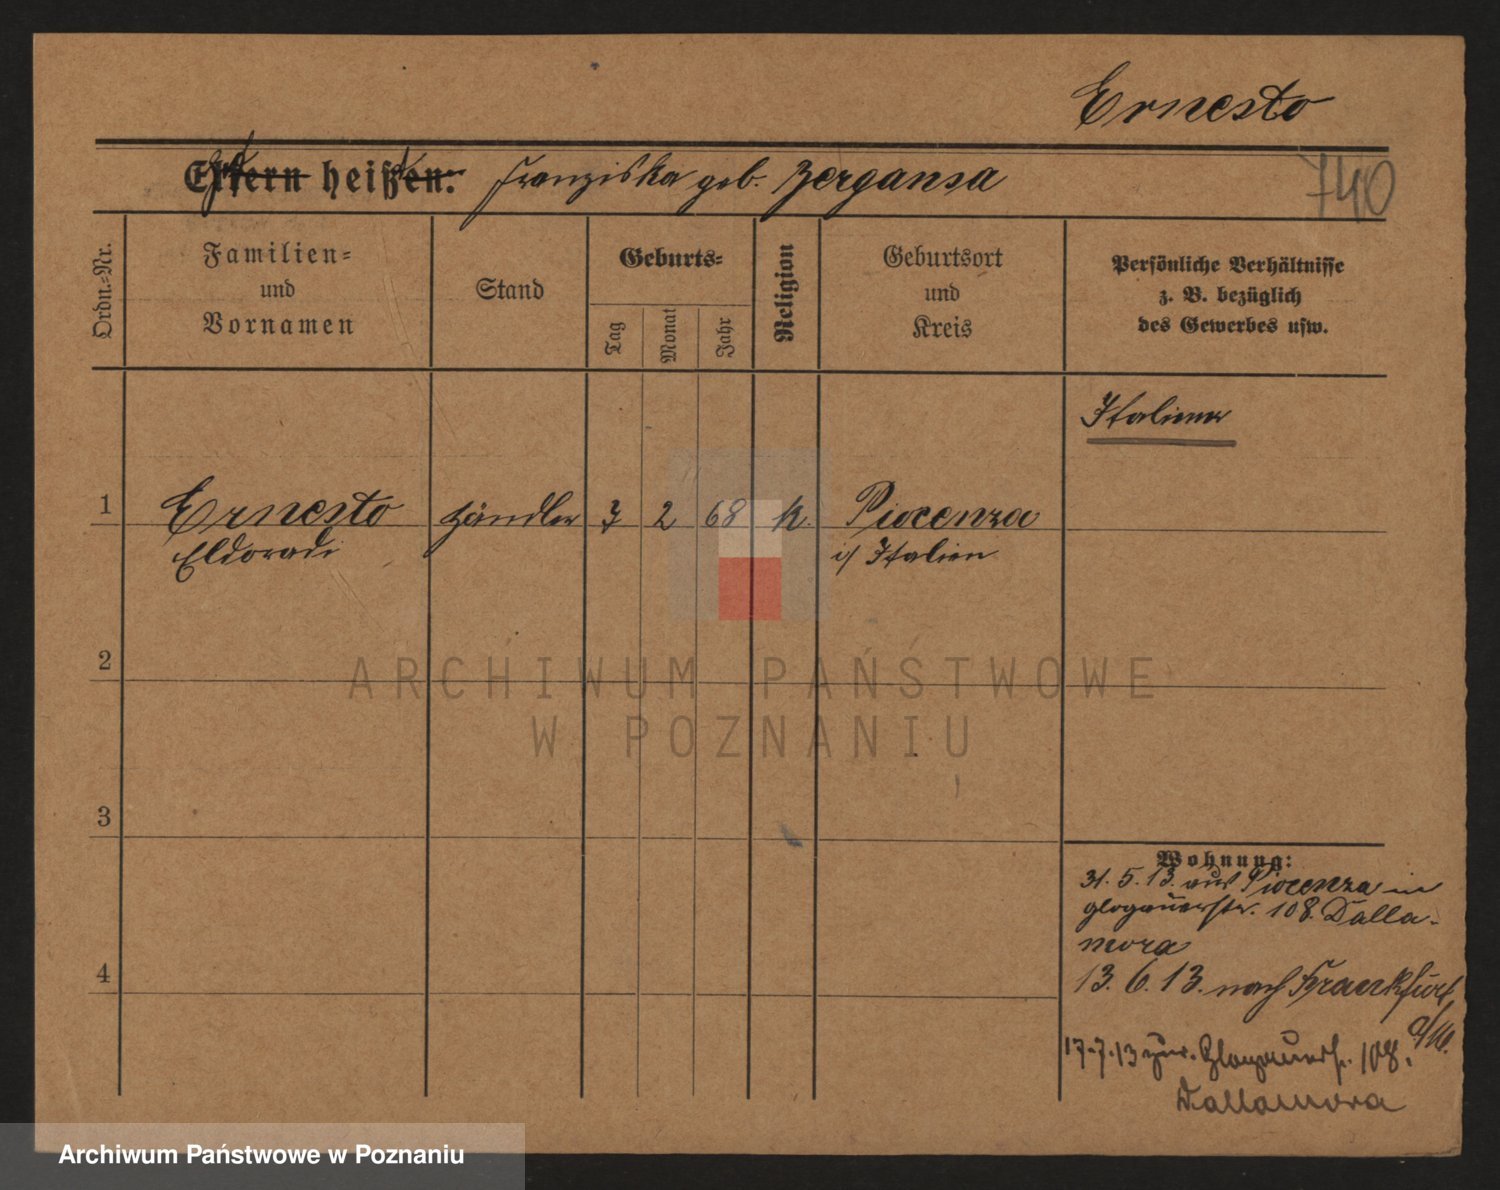 Ernesto
Eltern heißen: Franziska geb. Zergansa
740
Ordn.=Nr.
Familien=
und
Vornamen
Stand
Geburts=
Tag
Monat
Jahr
Religion
Geburtsort
und
Kreis
Persönliche Verhältnisse
z. B. bezüglich
des Gewerbes usw.
Italiener
1 Ernesto Händler 3 2 68 k. Piacenza
Eldoradi i/ Italien
2
3
4
Wohnung:
31. 5. 13. aus Piacenza in
Glogauerstr. 108. Dalla-
mora
13. 6. 13. nach Frankfurt
a/M.
17.7.13 zur. Glogauerst. 108.
Dallamora
ARCHIWUM PAŃSTWOWE
W POZNANIU
Archiwum Państwowe w Poznaniu